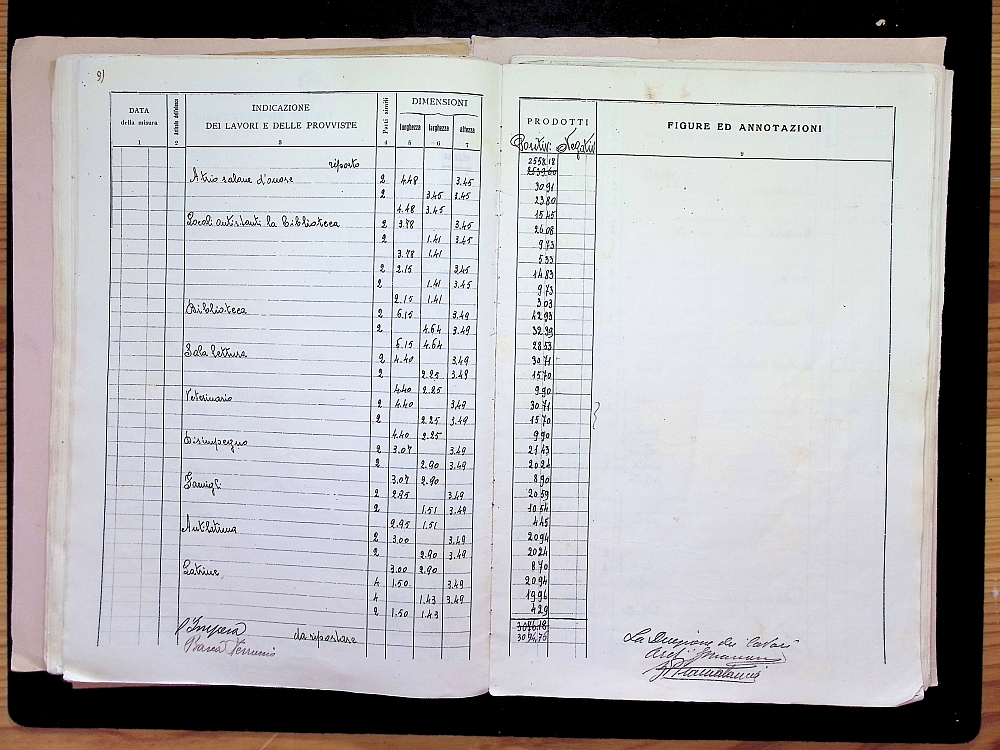 9)
DATA della misura Articolo dell'elenco INDICAZIONE DEI LAVORI E DELLE PROVVISTE Parti simili DIMENSIONI lunghezza larghezza altezza PRODOTTI FIGURE ED ANNOTAZIONI
1 2 3 4 5 6 7 Positivi Negativi 9
riporto 2558.18
2539.60
Atrio salone d'onore 2 4.48 3.45 30.91
2 3.45 3.45 23.80
4.48 3.45 15.45
Locali antistanti la biblioteca 2 3.78 3.45 26.08
2 1.41 3.45 9.73
3.78 1.41 5.33
2 2.15 3.45 14.83
2 1.41 3.45 9.73
2.15 1.41 3.03
Biblioteca 2 6.15 3.49 42.93
2 4.64 3.49 32.39
6.15 4.64 28.53
Sala lettura 2 4.40 3.49 30.71
2 2.25 3.49 15.70
4.40 2.25 9.90
Veterinario 2 4.40 3.49 30.71
2 2.25 3.49 15.70
4.40 2.25 9.90
Disimpegno 2 3.07 3.49 21.43
2 2.90 3.49 20.24
3.07 2.90 8.90
Famigl. 2 2.95 3.49 20.59
2 1.51 3.49 10.54
2.95 1.51 4.45
Antilatrina 2 3.00 3.49 20.94
2 2.90 3.49 20.24
3.00 2.90 8.70
Latrine 4 1.50 3.49 20.94
4 1.43 3.49 19.96
2 1.50 1.43 4.29
L'Impresa da riportare 3076.18
3094.76
La Direzione dei Lavori